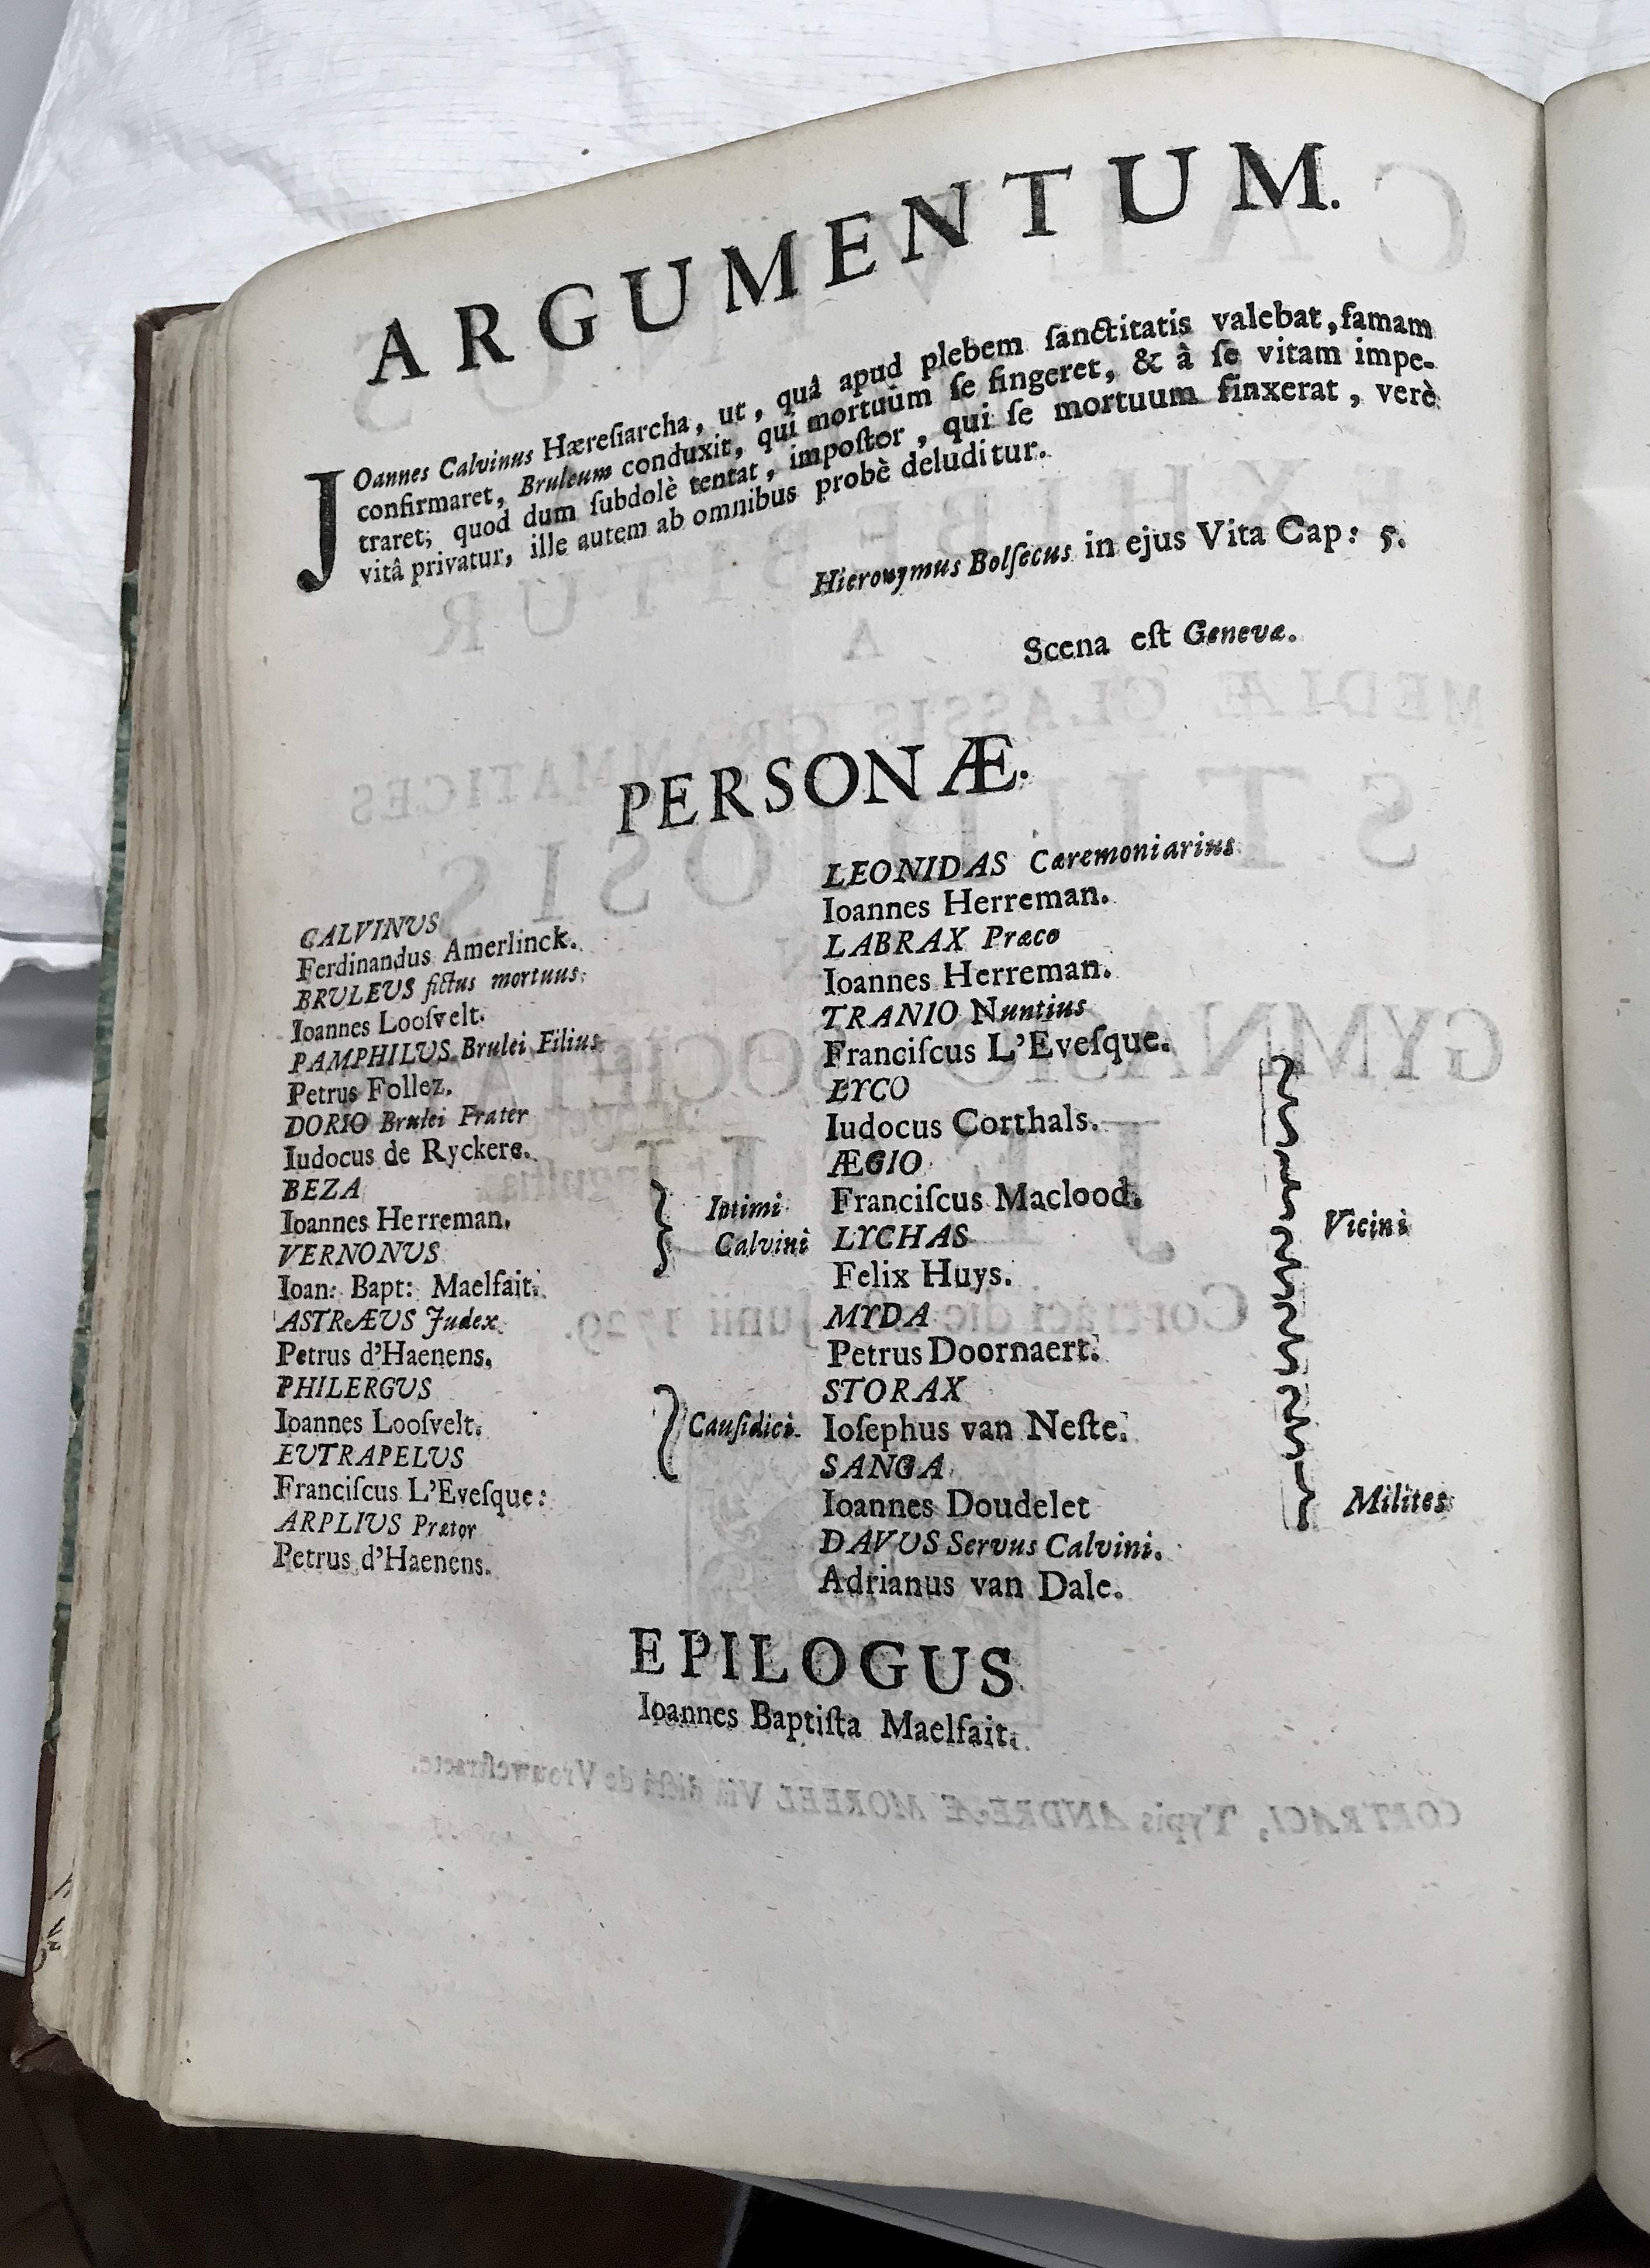 ARGUMENTUM.
JOannes Calvinus Hæresiarcha, ut, quâ apud plebem sanctitatis valebat, famam
confirmaret, Bruleum conduxit, qui mortuum se fingeret, & à se vitam impe-
traret; quod dum subdolè tentat, impostor, qui se mortuum finxerat, verè
vitâ privatur, ille autem ab omnibus probè deluditur.
Hieronymus Bolsecus in ejus Vita Cap: 5.
Scena est Genevæ.
PERSONÆ.
CALVINUS
Ferdinandus Amerlinck.
BRULEUS fictus mortuus.
Ioannes Loosvelt.
PAMPHILUS Brulei Filius
Petrus Follez.
DORIO Brulei Frater
Iudocus de Ryckere.
BEZA
Ioannes Herreman.
VERNONUS
Ioan: Bapt: Maelfait.
Intimi
Calvini
ASTRÆUS Judex
Petrus d'Haenens.
PHILERGUS
Ioannes Loosvelt.
EUTRAPELUS
Franciscus L'Evesque:
Causidici.
ARPLIUS Prætor
Petrus d'Haenens.
LEONIDAS Cæremoniarius
Ioannes Herreman.
LABRAX Præco
Ioannes Herreman.
TRANIO Nuntius
Franciscus L'Evesque.
LYCO
Iudocus Corthals.
ÆGIO
Franciscus Maclood.
LYCHAS
Felix Huys.
MYDA
Petrus Doornaert.
Vicini
STORAX
Iosephus van Neste.
SANGA
Ioannes Doudelet
Milites
DAVUS Servus Calvini.
Adrianus van Dale.
EPILOGUS
Ioannes Baptista Maelfait.